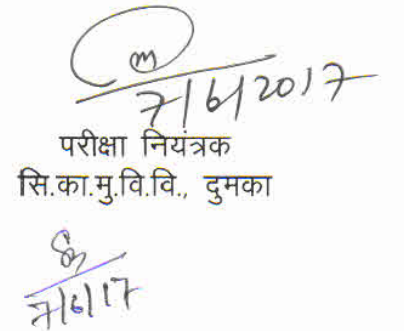 7/6/2017
परीक्षा नियंत्रक
सि.का.मु.वि.वि., दुमका
7/6/17